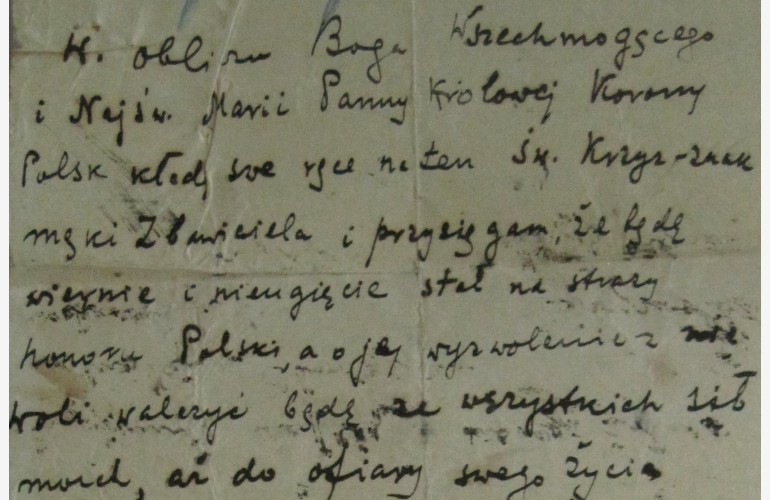 W. obliczu Boga Wszechmogącego
i Najśw. Marii Panny Królowej Korony
Polsk kładę swe ręce na ten św. Krzyż-znak
męki Zbawiciela i przysięgam, że będę
wiernie i nieugięcie stał na straży
honoru Polski, a o jej wyzwolenie z nie
woli walczyć będę ze wszystkich sił
moich, aż do ofiary swego życia